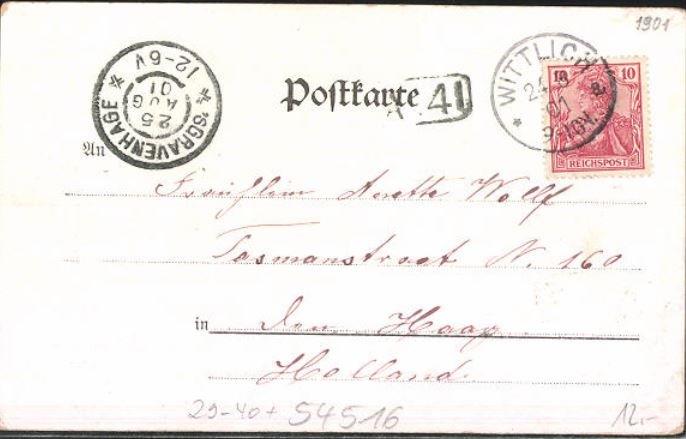 1901
* 'SGRAVENHAGE *
12-6V
25
AUG
01
Postkarte
41
* WITTLICH
24 8
01
10 10
REICHSPOST
An
Fräulein Anette Wolf
Tasmanstraat N. 160
in Den Haag
Holland
29-40+ 54516
12.-